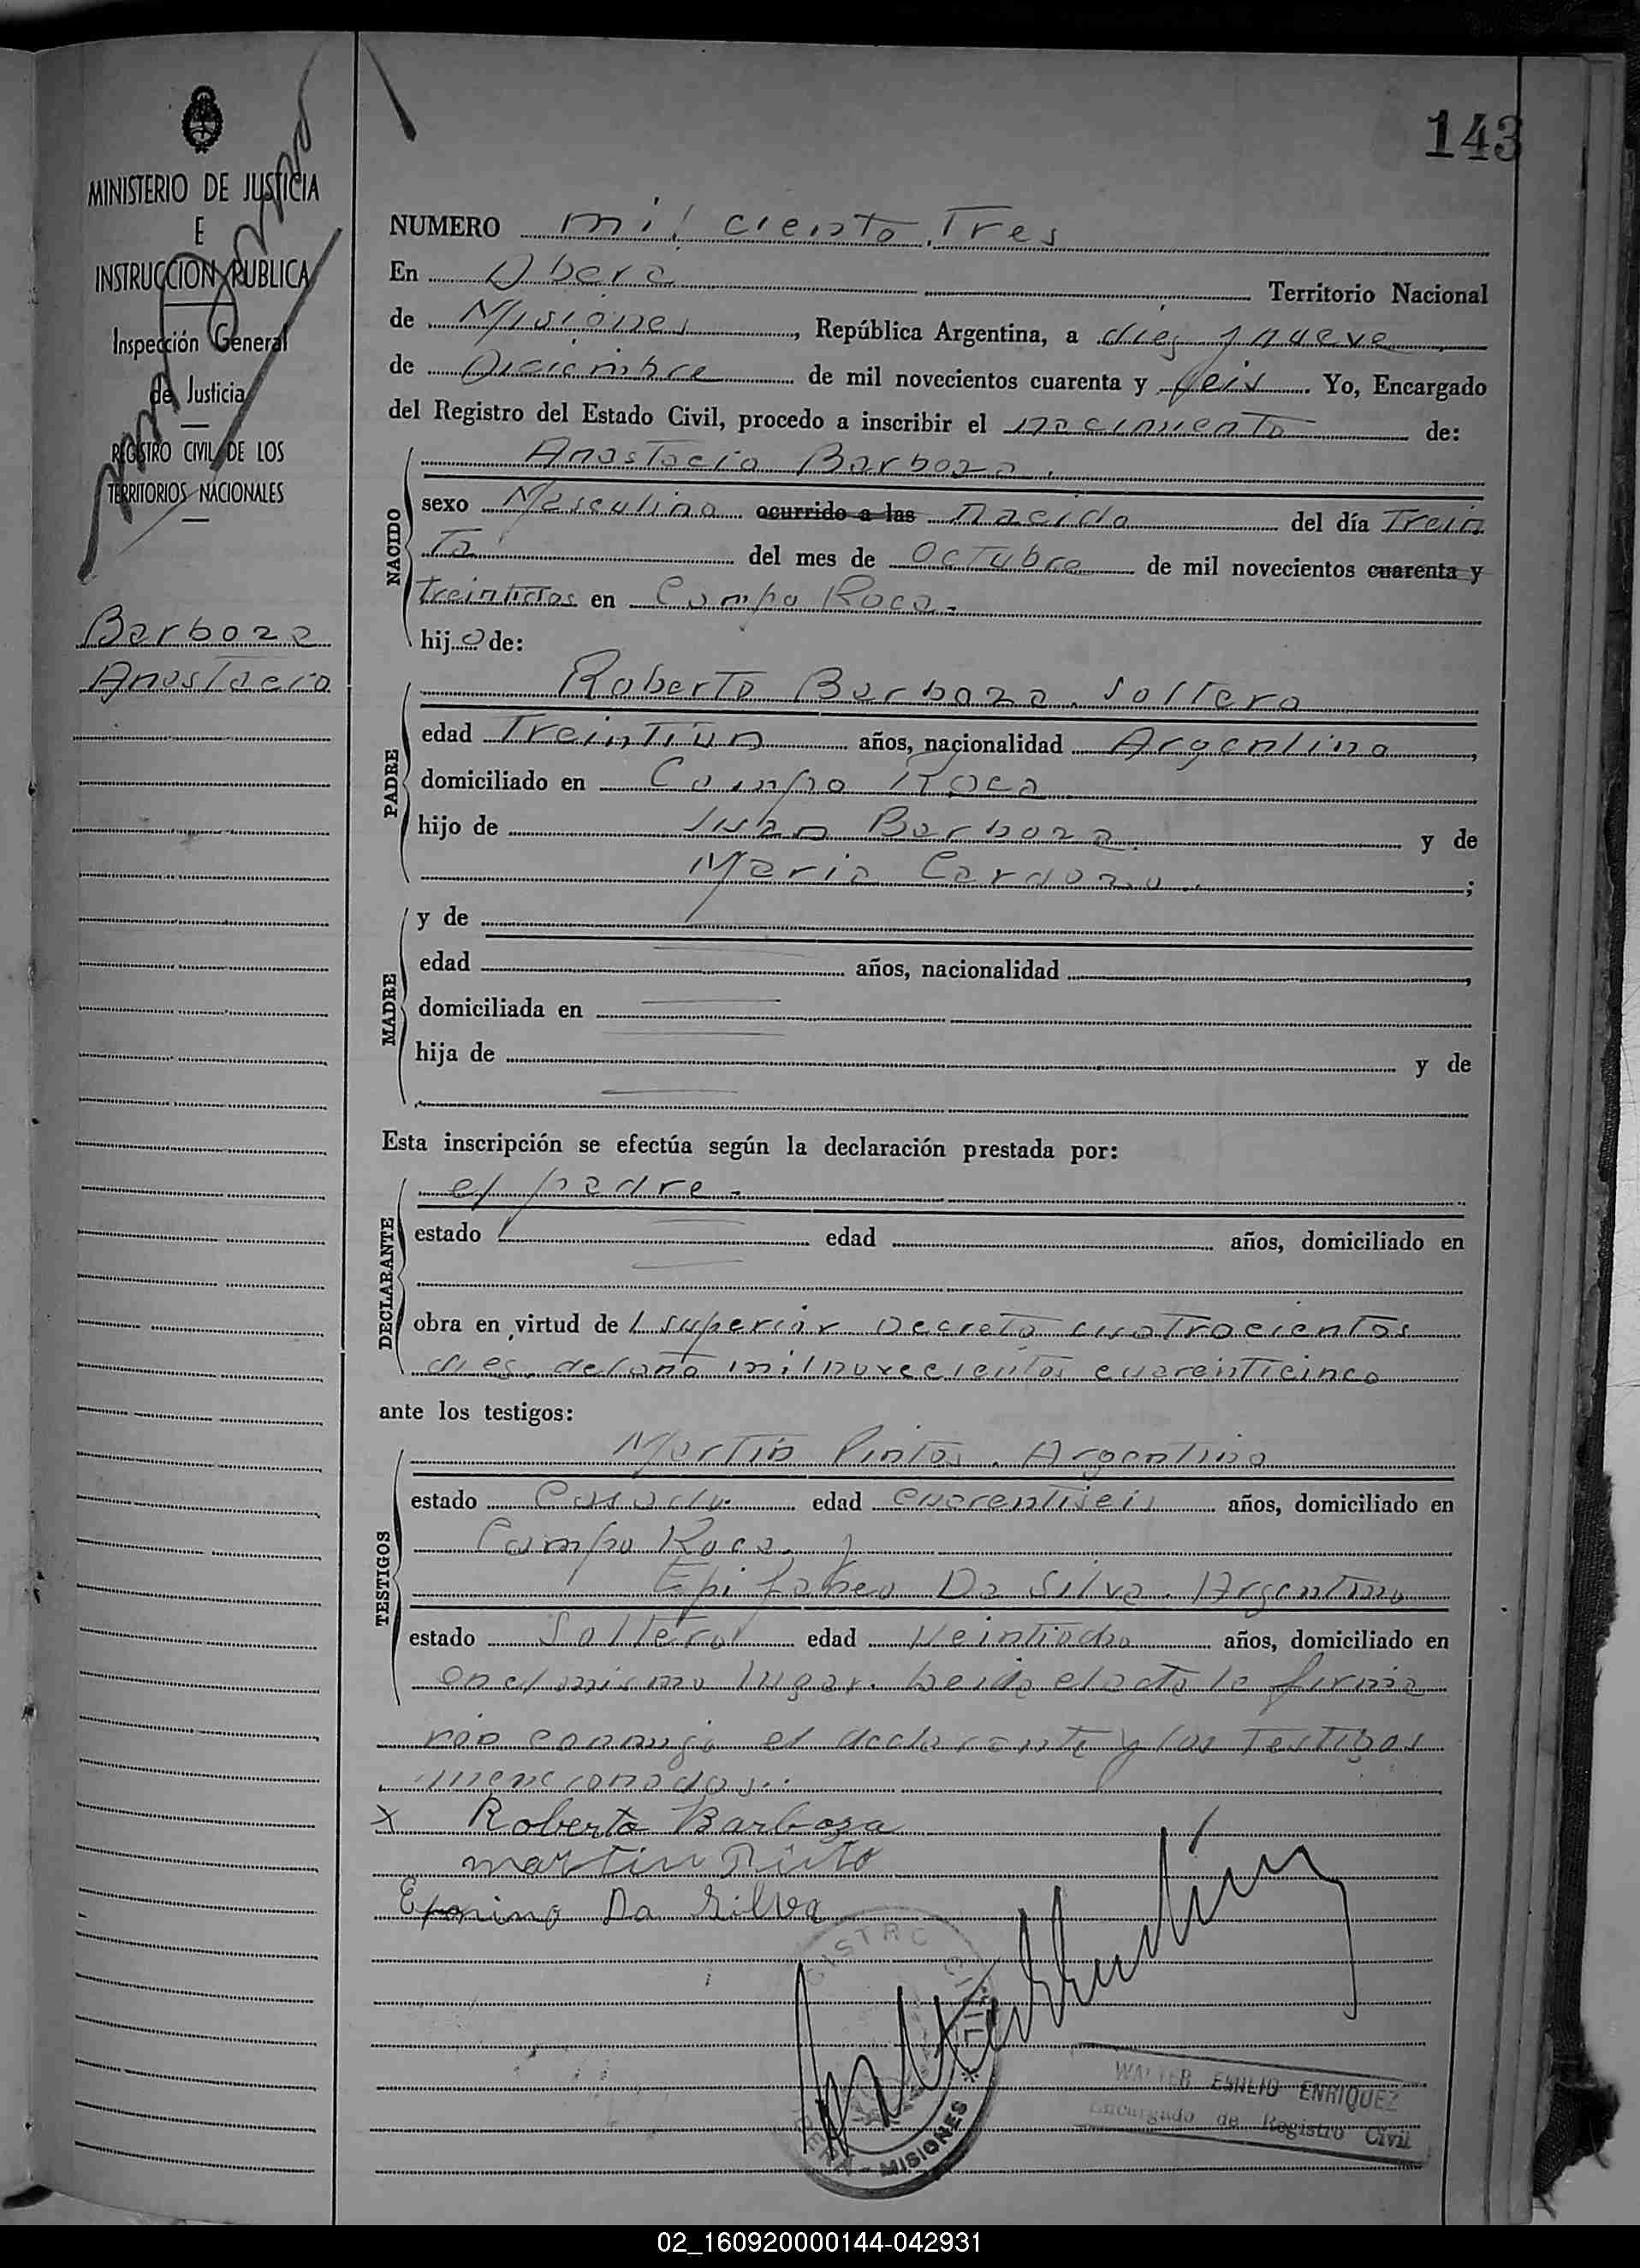 143
MINISTERIO DE JUSTICIA
E
INSTRUCCION PUBLICA
Inspección General
de Justicia
REGISTRO CIVIL DE LOS
TERRITORIOS NACIONALES
Barboza
Anastacio
NUMERO mil ciento Tres
En Obera Territorio Nacional
de Misiones, República Argentina, a diez y nueve
de Diciembre de mil novecientos cuarenta y seis. Yo, Encargado
del Registro del Estado Civil, procedo a inscribir el nacimiento de:
NACIDO
Anastacio Barboza.
sexo Masculino ocurrido a las nacido del día Trein
Ta del mes de Octubre de mil novecientos cuarenta y
treintidos en Campo Roca.
hijo de:
PADRE
Roberto Barboza. soltero
edad Treintiun años, nacionalidad Argentino,
domiciliado en Campo Roca
hijo de Juan Barboza y de
Maria Cardozo.;
MADRE
y de
edad años, nacionalidad,
domiciliada en
hija de y de
Esta inscripción se efectúa según la declaración prestada por:
DECLARANTE
el padre.
estado edad años, domiciliado en
obra en virtud de l superior Decreto cuatrocientos
dies del año mil novecientos cuarenticinco
ante los testigos:
TESTIGOS
Martin Pintos. Argentino
estado Casado. edad cuarentiseis años, domiciliado en
Campo Roca, y
Epifaneo Da Silva. Argentino
estado Soltero edad Veintiocho años, domiciliado en
en el mismo lugar. Leida el acta la firma
ron conmigo el declarante y los Testigos
mencionados.
x Roberto Barboza
martin Pinto
Da Silva
REGISTRO CIVIL
OBERA - MISIONES
WALTER EMILIO ENRIQUEZ
Encargado de Registro Civil
02_160920000144-042931